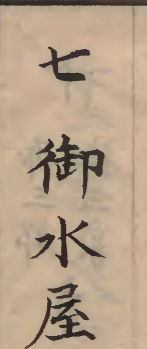 七 御水屋